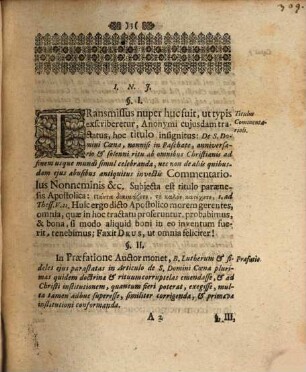 309.
I. N. J.
§. I.
TRansmissus nuper huc fuit, ut typis
exscriberetur, Anonymi cujusdam tra-
ctatus, hoc titulo insignitus: De S. Do-
mini Cœna, nonnisi in Paschate, anniversa-
rio & solenni ritu ab omnibus Christianis ad
finem usque mundi simul celebranda, nec non de aliis quibus-
dam ejus abusibus antiquitus invectis Commentario-
lus Nonneminis &c. Subjecta est titulo paræne-
sis Apostolica: πάντα δοκιμάζετε, τὸ καλὸν κατέχετε, 1. ad
Thess. V, 21. Huic ergo dicto Apostolico morem gerentes,
omnia, quæ in hoc tractatu proferuntur, probabimus,
& bona, si modo aliquid boni in eo inventum fue-
rit, tenebimus; Faxit DEUS, ut omnia feliciter!
Titulus
Commentarioli.
§. II.
In Præfatione Auctor monet, B. Lutherum & fi-
deles ejus parastatas in Articulo de S. Domini Cœna pluri-
mas quidem doctrinæ & rituum corruptelas emendasse, & ad
Christi institutionem, quantum fieri poterat, exegisse, mul-
ta tamen adhuc superesse, similiter corrigenda, & primævæ
institutioni conformanda.
Præfatio.
A 2
§. III,